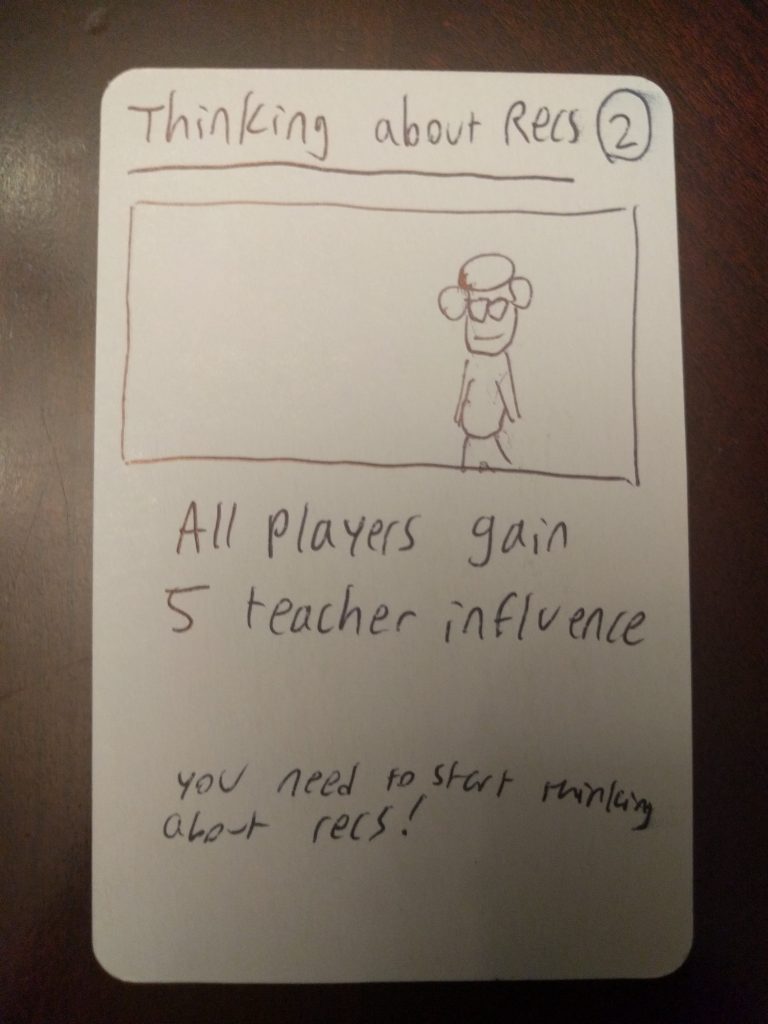 Thinking about Recs 2
All players gain
5 teacher influence
you need to start thinking
about recs!